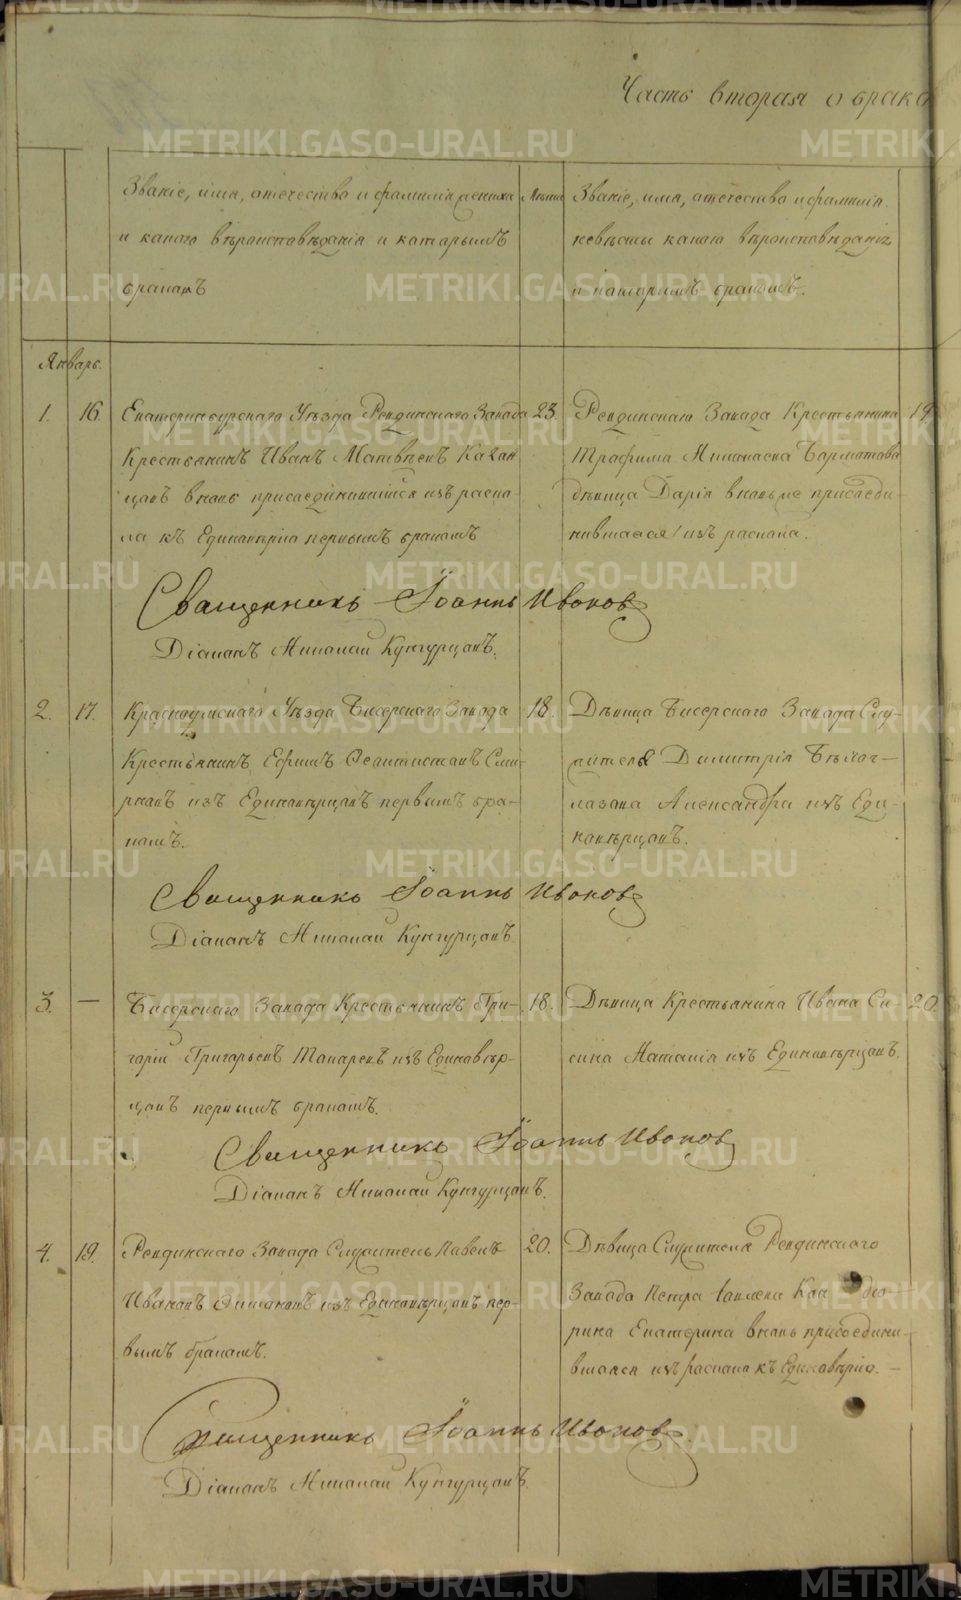 Часть вторая о брака
Званіе, имя, отечество и фамилія жениха
и какого вѣроисповѣданія и которымъ
бракомъ
Лѣта
Званіе, имя, отечество и фамилія
невѣсты какого вѣроисповѣданія,
и которымъ бракомъ.
Январь.
1. 16. Екатеринбурскаго Уѣзда Ревдинскаго Завода
Крестьянинъ Иванъ Матвѣевъ
цовъ вновь присоединившійся изъ раско-
ла къ Единовѣрію первымъ бракомъ
23.
Ревдинскаго Завода Крестьянина
Трофима
дѣвица Дарія вновь же присоеди-
нившаяся изъ раскола.
19
Священникъ Іоаннъ Ивонов
Діаконъ Николай Кунгурцовъ.
2. 17. Красноуфимскаго Уѣзда Бисерскаго Завода
Крестьянинъ Ефимъ Феоктистовъ Сми-
рновъ изъ Единовѣрцовъ первымъ бра-
комъ.
18.
Дѣвица Бисерскаго Завода Слу-
жителя Димитрія
Александра изъ Еди-
новѣрцовъ.
Священникъ Іоаннъ Ивонов
Діаконъ Николай Кунгурцовъ
3. — Бисерскаго Завода Крестьянинъ Гри-
горій Григорьевъ Токаревъ изъ Единовѣр-
цовъ первымъ бракомъ.
18.
Дѣвица Крестьянина Ивана Си-
сина Наталія изъ Единовѣрцовъ.
20.
Священникъ Іоаннъ Ивонов
Діаконъ Николай Кунгурцовъ.
4. 19. Ревдинскаго Завода Служитель Павелъ
Ивановъ изъ Единовѣрцовъ пер-
вымъ бракомъ.
20.
Дѣвица Служителя Ревдинскаго
Завода Петра
Екатерина вновь присоедини-
вшаяся изъ раскола къ Единовѣрію. —
Священникъ Іоаннъ Ивонов
Діаконъ Николай Кунгурцовъ.
METRIKI.GASO-URAL.RU